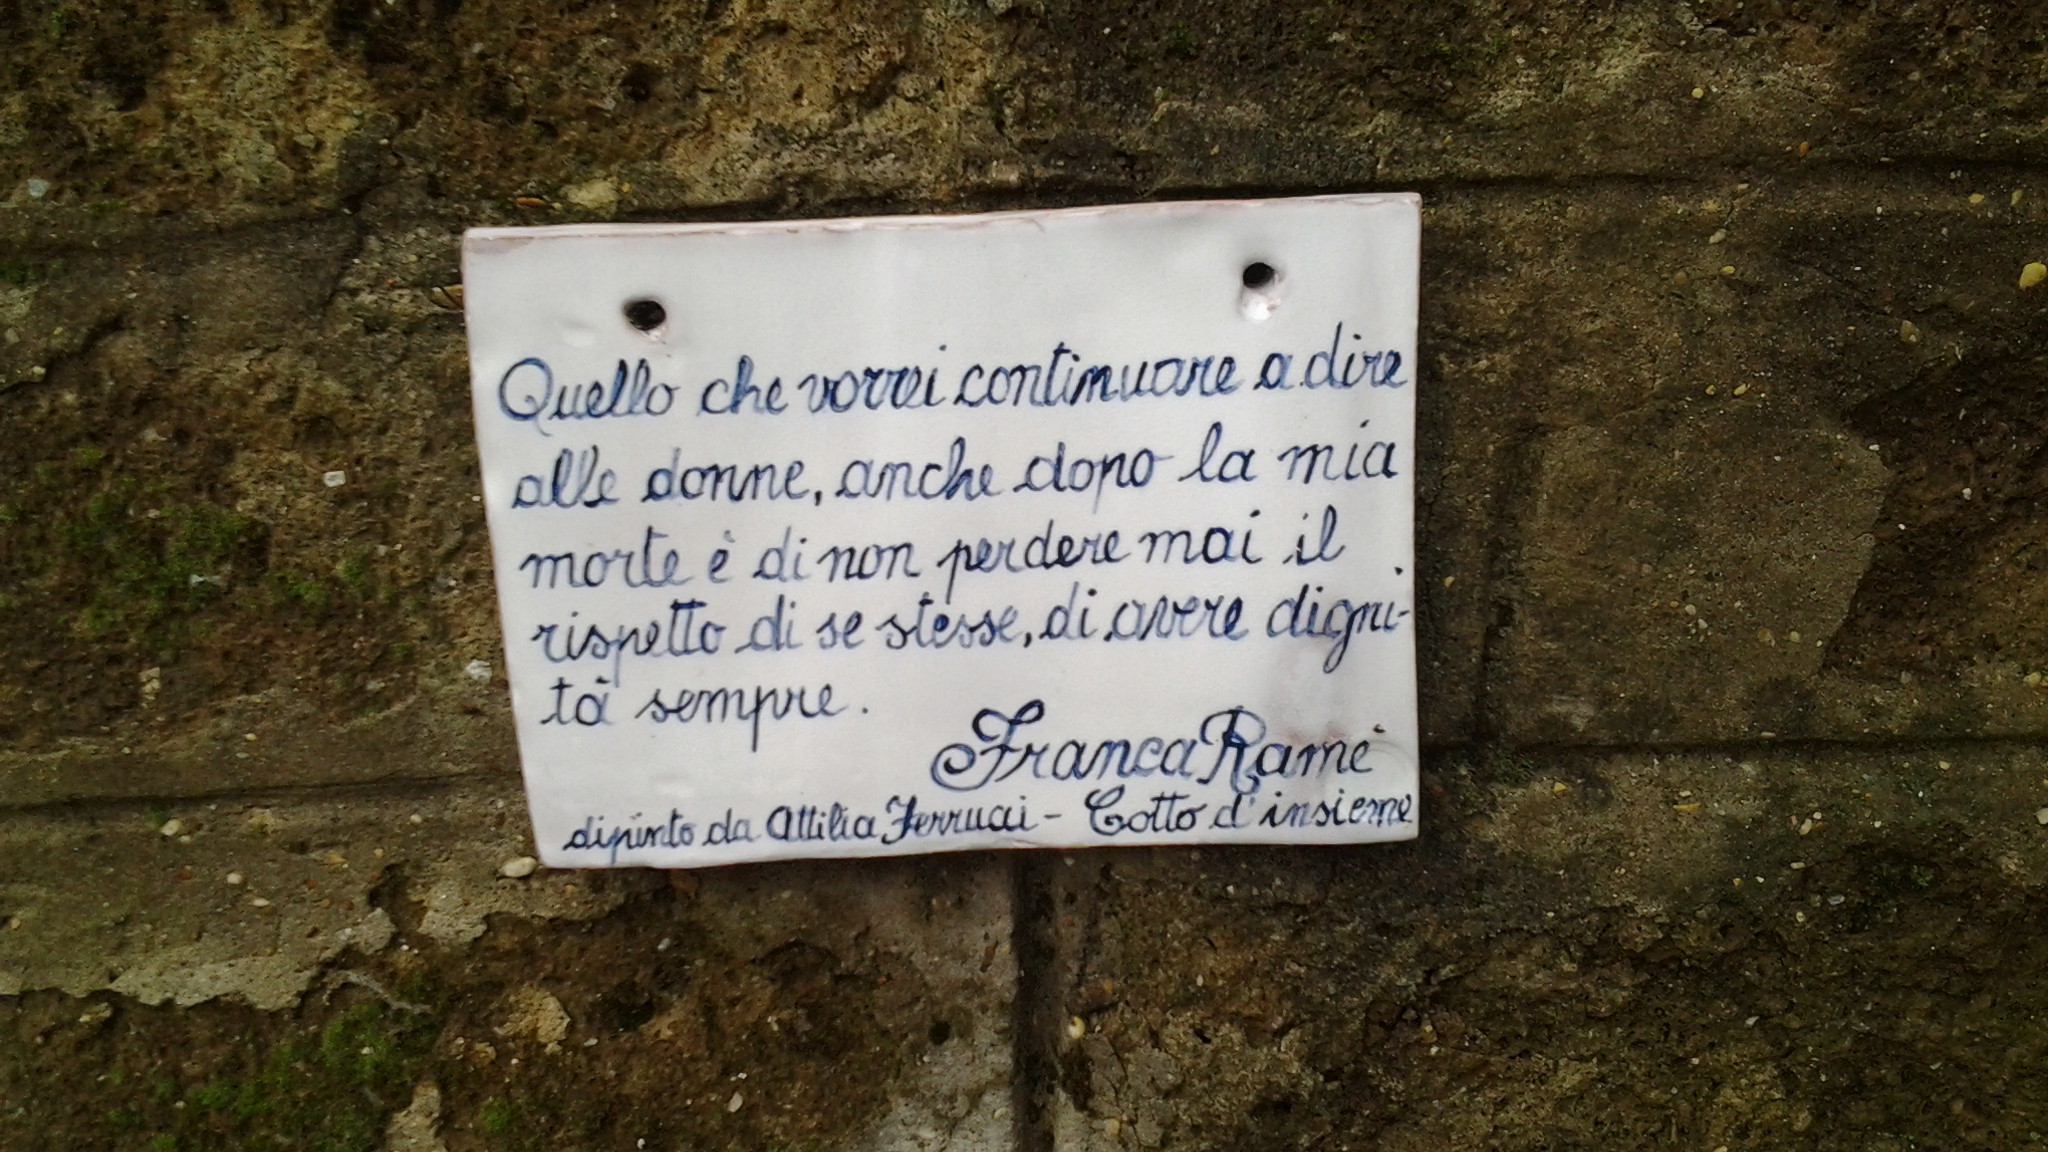 Quello che vorrei continuare a dire
alle donne, anche dopo la mia
morte è di non perdere mai il
rispetto di se stesse, di avere digni-
tà sempre.
Franca Ramè
dipinto da Attilia Ferrucci - Cotto d'insieme